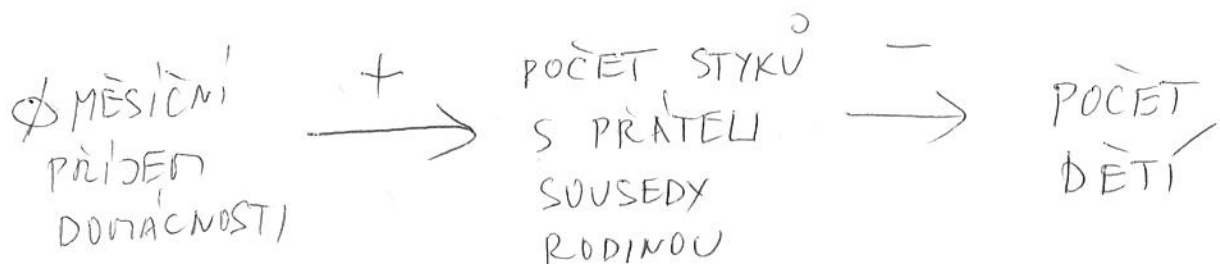 Ø MĚSÍČNÍ
PŘÍJEM
DOMÁCNOSTI
+
POČET STYKŮ
S PŘÁTELI
SOUSEDY
RODINOU
−
POČET
DĚTÍ